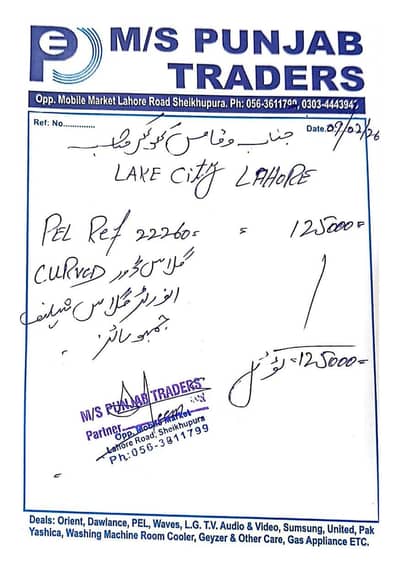 M/S PUNJAB
TRADERS
Opp. Mobile Market Lahore Road Sheikhupura. Ph: 056-3611799, 0303-4443942
Ref: No.............
Date. 09/02/26
جناب وقاص
LAKE City LAHORE
PEL Ref 22260= = 125000=
CURVED گلاس ڈور
انورٹر گلاس شیلف
جمبو سائز
ٹوٹل =125000=
M/S PUNJAB TRADERS
Partner
Opp. Mobile Market
Lahore Road, Sheikhupura
Ph:056-3611799
Deals: Orient, Dawlance, PEL, Waves, L.G. T.V. Audio & Video, Sumsung, United, Pak
Yashica, Washing Machine Room Cooler, Geyzer & Other Care, Gas Appliance ETC.